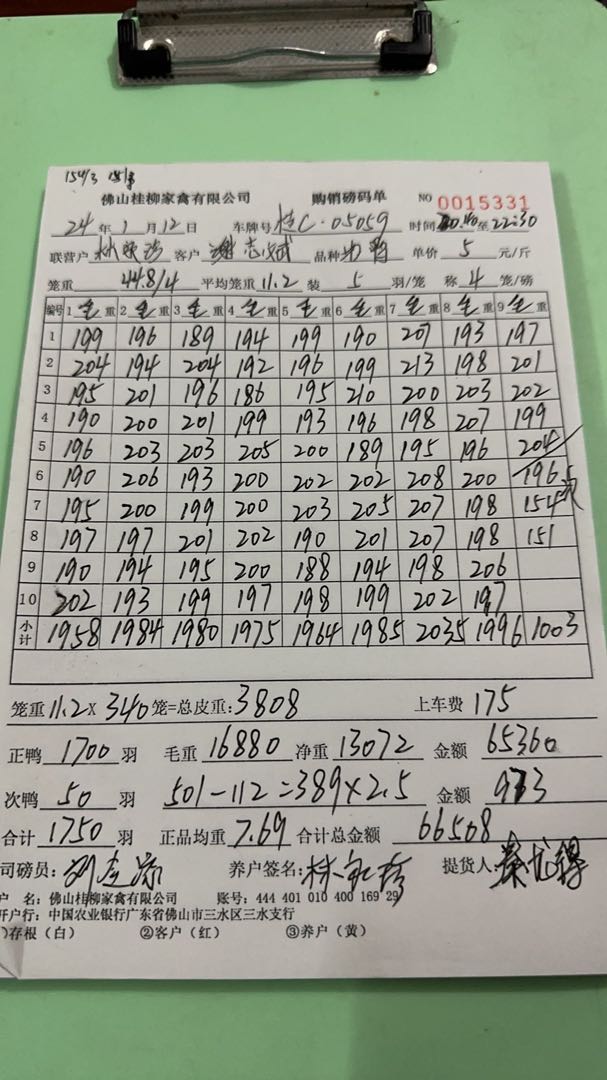 佛山桂柳家禽有限公司 购销磅码单 NO 0015331
24年1月12日 车牌号 桂C·05059 时间 至22:30
联营户 客户 品种 单价 5 元/斤
笼重 44.8/4 平均笼重 11.2 装 5 羽/笼 称 4 笼/磅
编号 1 毛重 2 毛重 3 毛重 4 毛重 5 毛重 6 毛重 7 毛重 8 毛重 9 毛重
1 199 196 189 194 199 190 201 193 197
2 204 194 204 192 196 199 213 198 201
3 195 201 196 186 195 210 200 203 202
4 190 200 201 199 193 196 198 207 199
5 196 203 203 205 200 189 195 196 204
6 190 206 193 200 202 202 208 200 196
7 195 200 199 200 203 205 207 198 154
8 197 197 201 202 190 201 207 198 151
9 190 194 195 200 188 194 198 206
10 202 193 199 197 198 199 202 197
小计 1958 1984 1980 1975 1964 1985 2035 1996 1003
笼重 11.2 X 340 笼=总皮重: 3808 上车费 175
正鸭 1700 羽 毛重 16880 净重 13072 金额 65360
次鸭 50 羽 501-112=389×2.5 金额 973
合计 1750 羽 正品均重 7.69 合计总金额 66508
司磅员: 养户签名: 提货人:
户 名: 佛山桂柳家禽有限公司 账号: 444 401 010 400 169 29
开户行: 中国农业银行广东省佛山市三水区三水支行
①存根(白) ②客户(红) ③养户(黄)